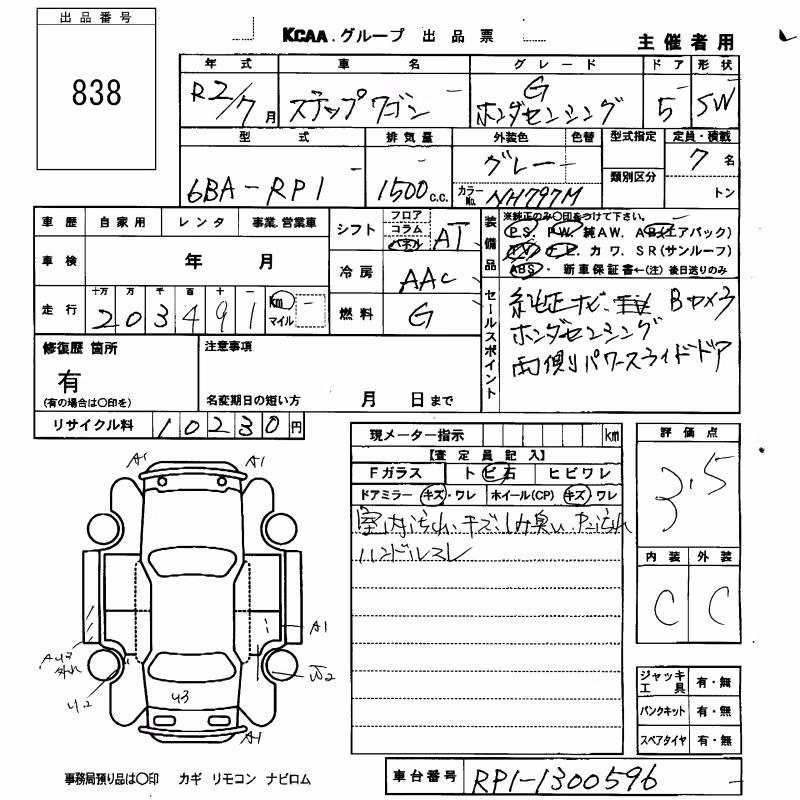 出品番号
838
KCAA.グループ 出品票
主催者用
年式 車名 グレード ドア 形状
R2/7月 ステップワゴン G ホンダセンシング 5 SW
型式 排気量 外装色 色替 型式指定 定員・積載
6BA-RP1 1500c.c. グレー 類別区分 7名
カラーNo. NH797M トン
車歴 自家用 レンタ 事業.営業車
車検 年 月
走行 十万 万 千 百 十 一
203491 km マイル
シフト フロア コラム パネル AT
冷房 AAC
燃料 G
装備品 ※純正のみ〇印をつけて下さい。
P.S. P.W. 純AW. AB(エアバック)
カワ. SR(サンルーフ)
ABS・新車保証書←(注)後日送りのみ
セールスポイント
純正ナビ、 Bカメラ
ホンダセンシング
両側パワースライドドア
修復歴 箇所
有
(有の場合は〇印を)
注意事項
名変期日の短い方 月 日まで
リサイクル料 10230円
現メーター指示 km
【査定員記入】
Fガラス トビ石 ヒビワレ
ドアミラー キズ・ワレ ホイール(CP) キズ・ワレ
室内汚れ、キズ、
ハンドルスレ
評価点
3.5
内装 外装
C C
A1 A1
A1
U2
U3
A1
ジャッキ工具 有・無
パンクキット 有・無
スペアタイヤ 有・無
事務局預り品は〇印 カギ リモコン ナビロム
車台番号 RP1-1300596